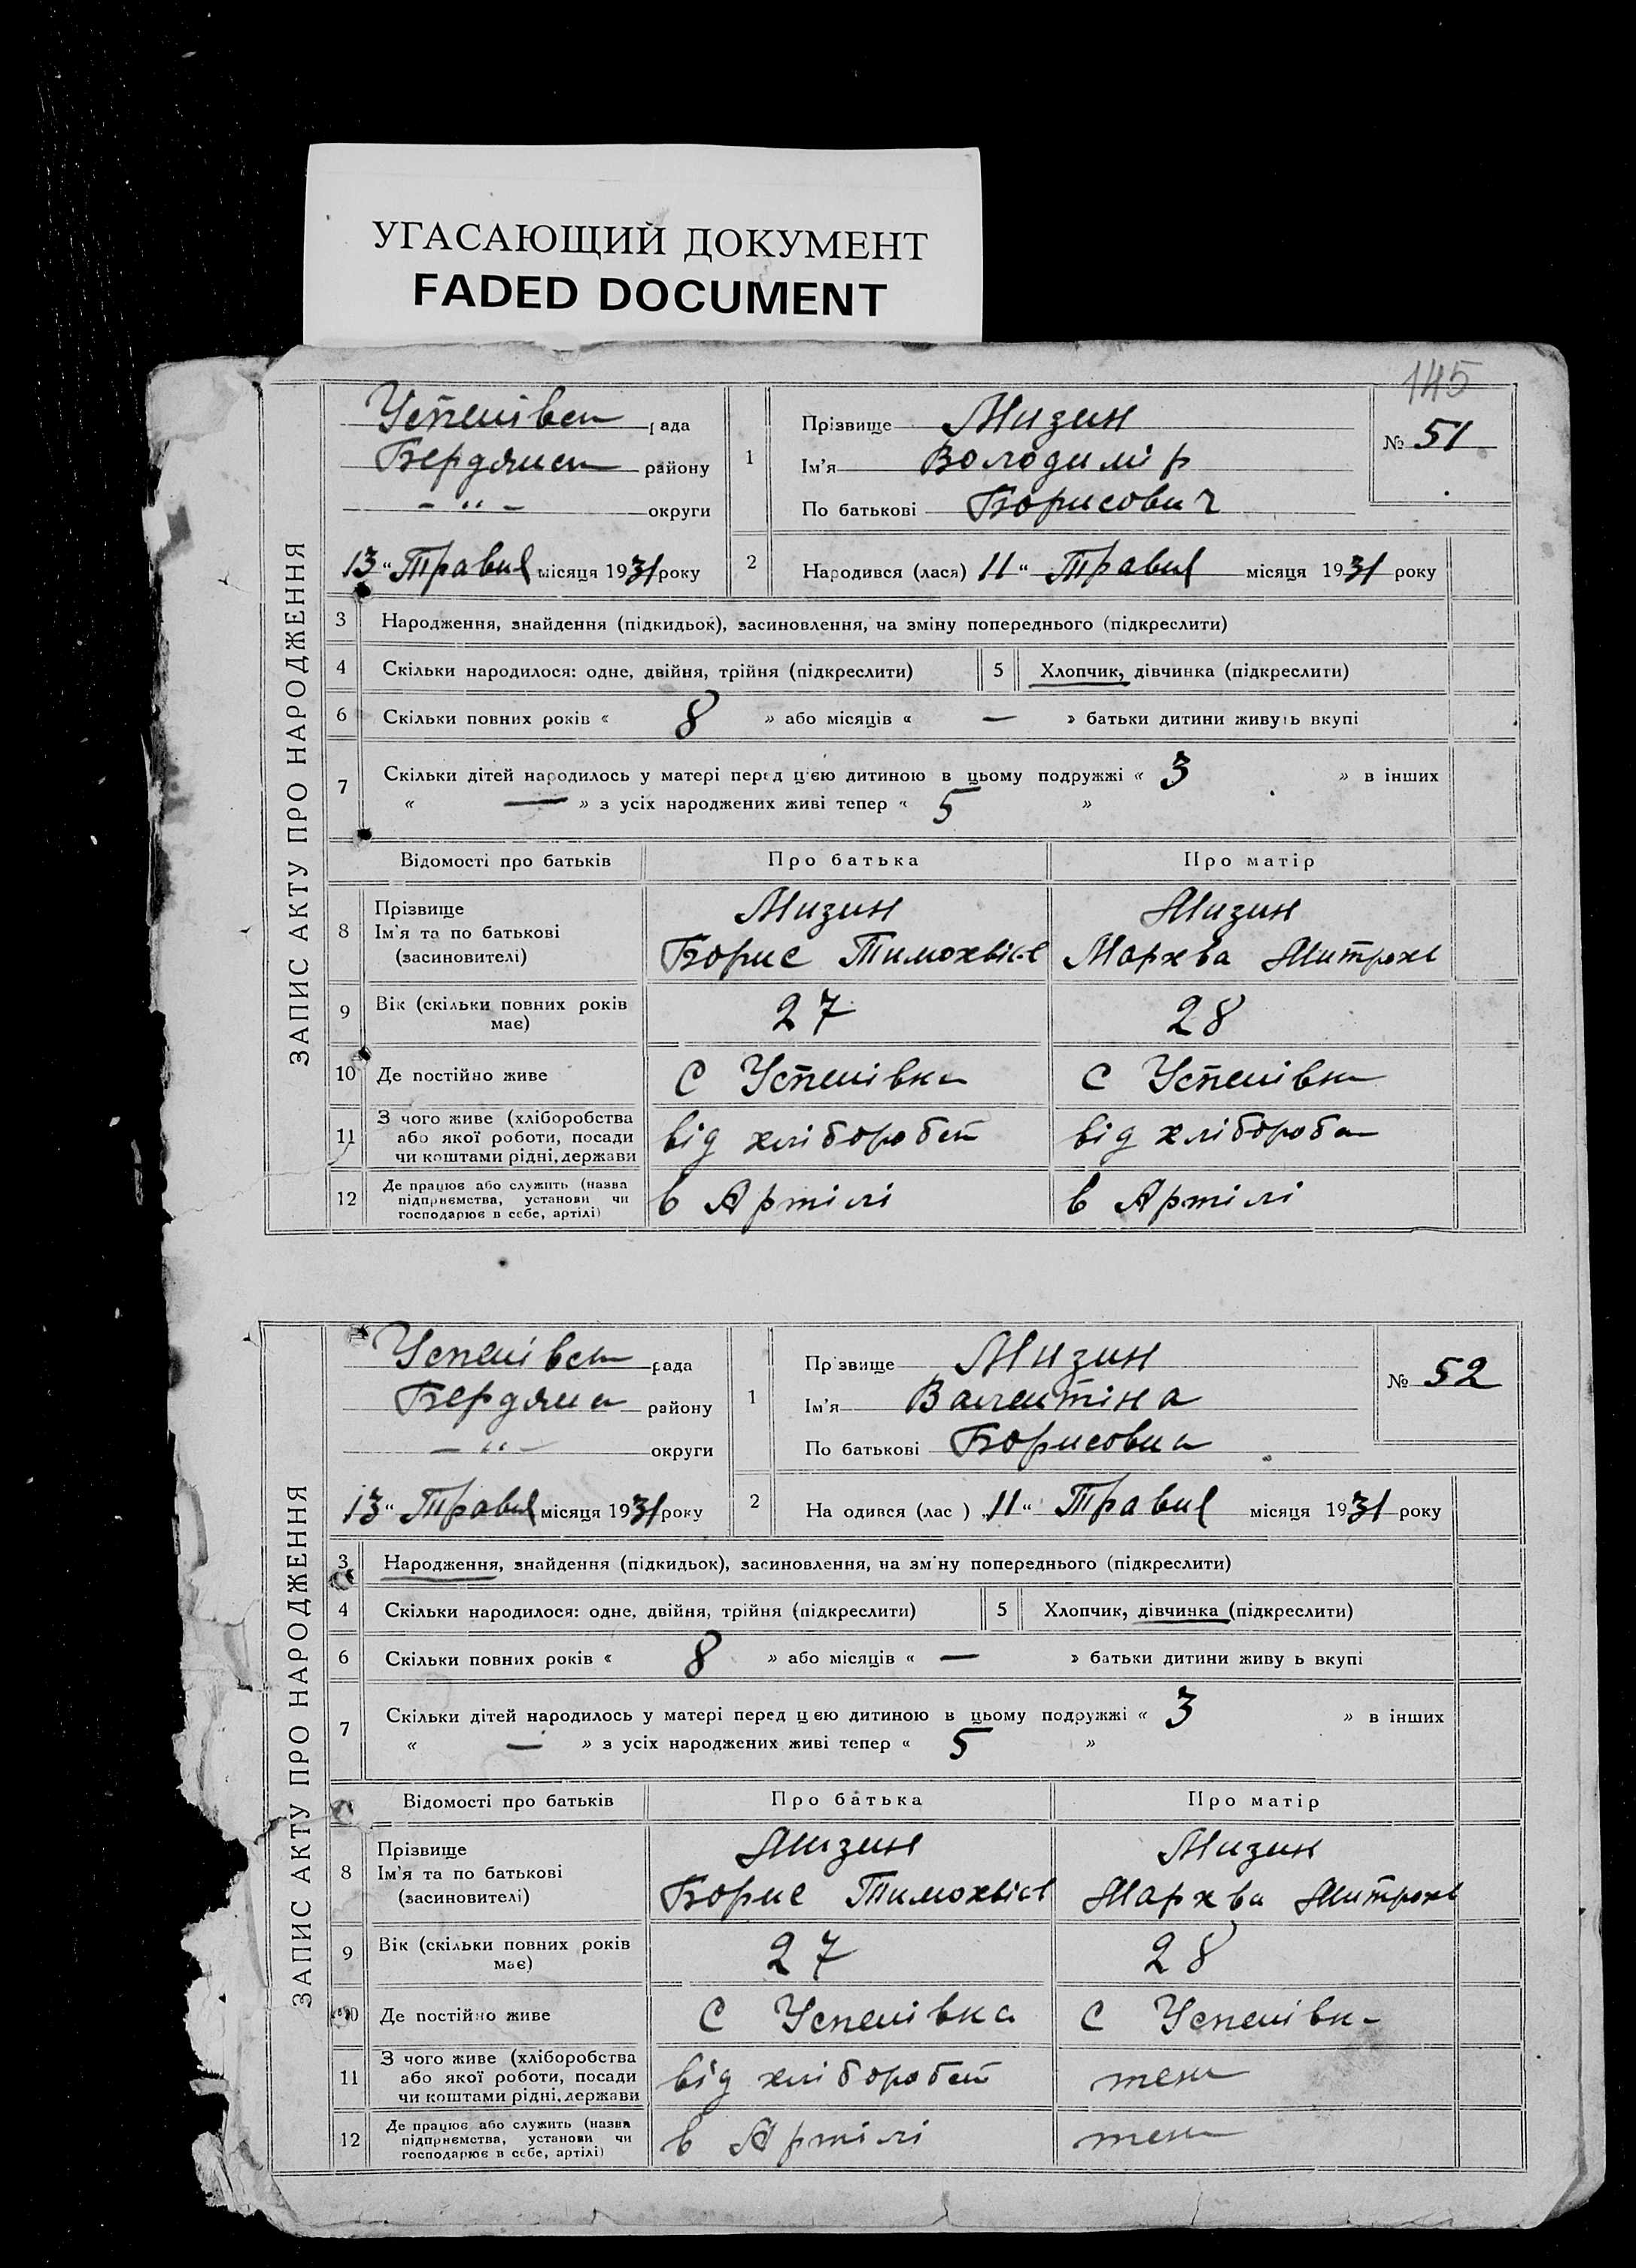 УГАСАЮЩИЙ ДОКУМЕНТ
FADED DOCUMENT
145
ЗАПИС АКТУ ПРО НАРОДЖЕННЯ
Успенівськ рада
Бердянськ району
— " — округи
13 " Травня місяця 1931 року
1 Прізвище Мизин
Ім'я Володимір
По батькові Борисович
№ 51
2 Народився (лася) 11 " Травня місяця 1931 року
3 Народження, знайдення (підкидьок), засиновлення, на зміну попереднього (підкреслити)
4 Скільки народилося: одне, двійня, трійня (підкреслити) 5 Хлопчик, дівчинка (підкреслити)
6 Скільки повних років « 8 » або місяців « — » батьки дитини живуть вкупі
7 Скільки дітей народилось у матері перед цією дитиною в цьому подружжі « 3 » в інших
« — » з усіх народжених живі тепер « 5 »
Відомості про батьків Про батька Про матір
8 Прізвище Мизин Мизин
Ім'я та по батькові Борис Тимохвієв Мархва Митрохв
(засиновителі)
9 Вік (скільки повних років 27 28
має)
10 Де постійно живе с Успенівка с Успенівка
З чого живе (хліборобства
11 або якої роботи, посади від хліборобст від хлібороба
чи коштами рідні, держави
Де працює або служить (назва
12 підприємства, установи чи в Артілі в Артілі
господарює в себе, артілі)
ЗАПИС АКТУ ПРО НАРОДЖЕННЯ
Успенівськ рада
Бердянс району
— " — округи
13 " Травня місяця 1931 року
1 Прізвище Мизин
Ім'я Валентіна
По батькові Борисовна
№ 52
2 На одився (лас ) 11 " Травня місяця 1931 року
3 Народження, знайдення (підкидьок), засиновлення, на зміну попереднього (підкреслити)
4 Скільки народилося: одне, двійня, трійня (підкреслити) 5 Хлопчик, дівчинка (підкреслити)
6 Скільки повних років « 8 » або місяців « — » батьки дитини живу ь вкупі
7 Скільки дітей народилось у матері перед цією дитиною в цьому подружжі « 3 » в інших
« — » з усіх народжених живі тепер « 5 »
Відомості про батьків Про батька Про матір
8 Прізвище Мизин Мизин
Ім'я та по батькові Борис Тимохвієв Мархва Митрохв
(засиновителі)
9 Вік (скільки повних років 27 28
має)
10 Де постійно живе с Успенівка с Успенівка
З чого живе (хліборобства
11 або якої роботи, посади від хліборобст теж
чи коштами рідні, держави
Де працює або служить (назва
12 підприємства, установи чи в Артілі теж
господарює в себе, артілі)